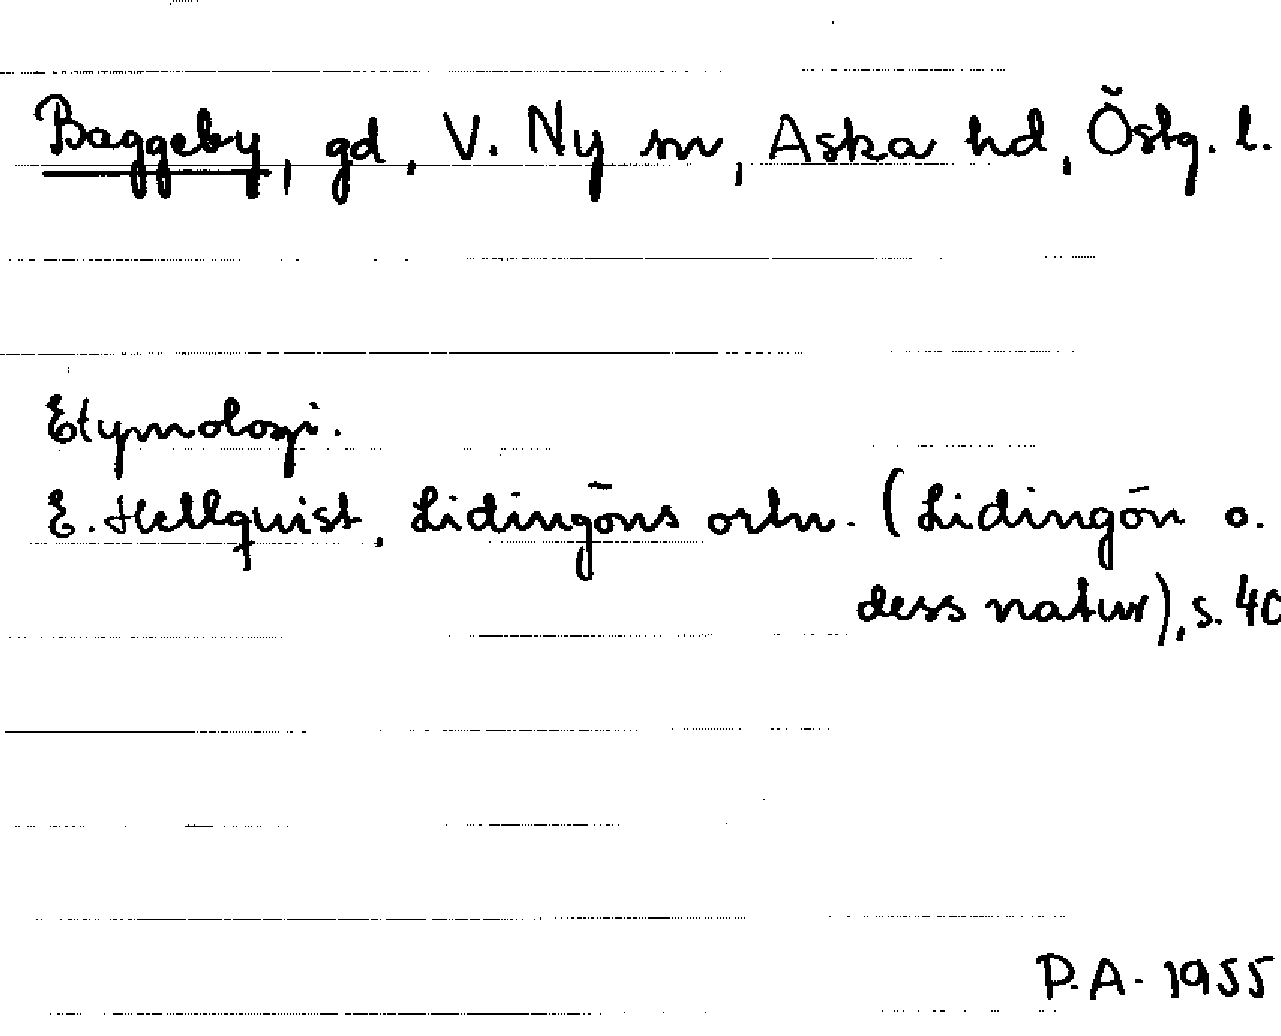 Baggeby, gd, V. Ny sn, Aska hd, Östg. l.
Etymologi.
E. Hellquist, Lidingöns ortn. (Lidingön o.
dess natur), s. 40
P.A. 1955